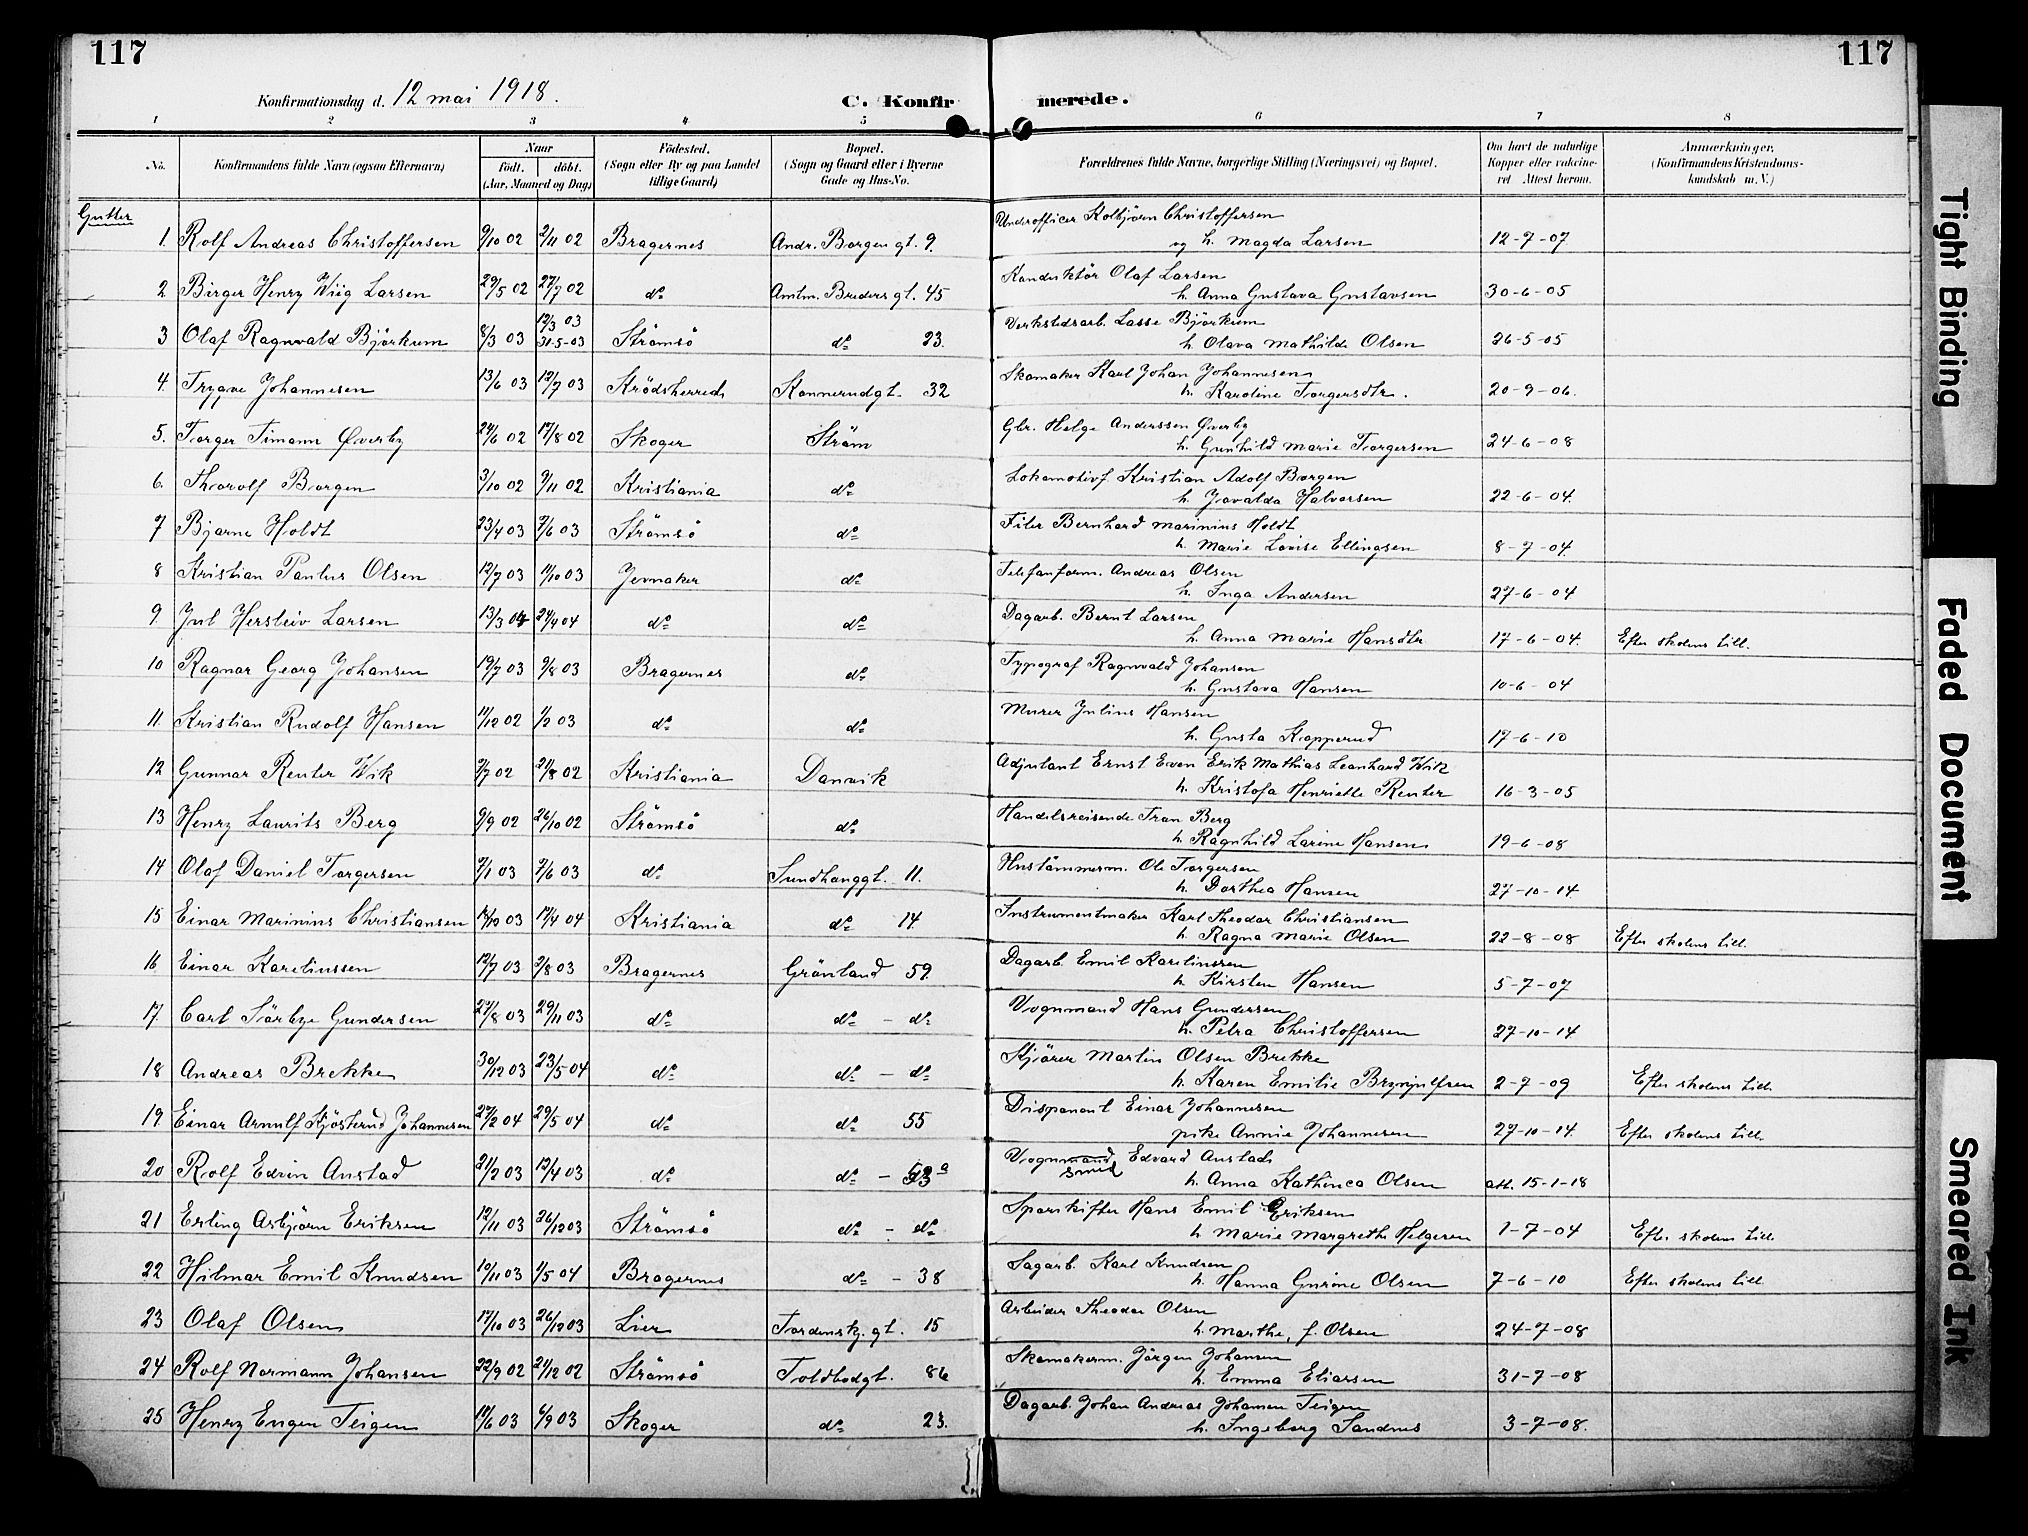 117
117
Konfirmationsdag d. 12 mai 1918.
C. Konfirmerede.
1 2 3 4 5 6 7 8
No. Konfirmandens fulde Navn (ogsaa Efternavn) Naar født. døbt. (Aar, Maaned og Dag) Fødested. (Sogn eller By og paa Landet tillige Gaard) Bopæl. (Sogn og Gaard eller i Byerne Gade og Hus-No. Forældrenes fulde Navne, borgerlige Stilling (Næringsvei) og Bopæl. Om havt de naturlige Kopper eller vakcineret Attest herom. Anmærkninger. (Konfirmandens Kristendomskundskab m. V.)
Gutter
1. Rolf Andreas Christoffersen 9/10 02 2/11 02 Bragernes Andr. Borgen gt. 9. Underofficer Kolbjörn Christoffersen
og h. Magda Larsen 12-7-07
2 Birger Henry Wiig Larsen 29/5 02 27/7 02 do Amtm. Breders gt. 45 Konduktör Olaf Larsen
h. Anna Gustava Gustavsen 30-6-05
3 Olaf Ragnvald Björkum 8/3 03 12/3 03 31-5-03 Strömsö do 23 Verkstedsarb. Lasse Björkum
h. Olava Mathilde Olsen 26-5-05
4. Trygve Johannesen 13/6 03 12/7 03 Krödsherred Konnerudgt. 32 Skomaker Karl Johan Johannesen
h. Karoline Torgersdtr. 20-9-06.
5. Torger Timann Øverby 24/6 02 17/8 02 Skoger Ström Gbr. Helge Anderssen Øverby
h. Gunhild Marie Torgersen 24-6-08
6. Thorolf Borgen 3/10 02 9/11 02 Kristiania do Lokomotivf. Kristian Adolf Borgen
h. Jovalda Halvorsen 22-6-04
7 Bjarne Holdt 23/4 03 7/6 03 Strömsö do Filer Bernhard Marinius Holdt
h. Marie Lovise Ellingsen 8-7-04.
8 Kristian Paulus Olsen 12/7 03 11/10 03 Jevnaker do Telefonform. Andreas Olsen
h. Inga Andersen 27-6-04
9 Jul Hersleiv Larsen 13/3 04 24/4 04 do do Dagarb. Bernt Larsen
h. Anna Marie Hansdtr 17-6-04. Efter skolens till.
10 Ragnar Georg Johansen 19/7 03 9/8 03 Bragernes do Typograf Ragnvald Johansen
h. Gustava Hansen 10-6-04
11 Kristian Rudolf Hansen 11/12 02 1/2 03 do do Murer Julius Hansen
h. Gusta Kopperud 17-6-10
12 Gunnar Reuter Wik 7/7 02 31/8 02 Kristiania Danvik Adjutant Ernst Even Erik Mathias Leonhard Wik
h. Kristofa Henriette Reuter 16-3-05
13 Henry Laurits Berg 9/9 02 26/10 02 Strömsö do Handelsreisende Fran Berg
h. Ragnhild Larine Hansen 19-6-08
14 Olaf Daniel Torgersen 7/1 03 7/6 03 do Sundhauggt. 11. Hustömmerm. Ole Torgersen
h. Dorthea Hansen 27-10-14
15 Einar Marinius Christiansen 14/10 03 17/4 04 Kristiania do 14. Instrumentmaker Karl Theodor Christiansen
h. Ragna Marie Olsen 22-8-08 Efter skolens till.
16 Einar Karelinssen 12/7 03 2/8 03 Bragernes Grönland 59. Dagarb. Emil Karelinssen
h. Kirsten Hansen 5-7-07
17. Carl Sörbye Gundersen 27/8 03 29/11 03 do do - do Vognmand Hans Gundersen
h. Petra Christoffersen 27-10-14
18 Andreas Brekke 30/12 03 23/5 04 do do - do Kjörer Martin Olsen Brekke
h. Karen Emilie Brynjulfsen 2-7-09 Efter skolens till.
19 Einar Arnulf Kjösterud Johannesen 27/2 04 29/5 04 do do 55 Disponent Einar Johannesen
pike Annie Johannesen 27-10-14. Efter skolens till.
20 Rolf Edvin Anstad 21/2 03 12/4 03 do do - 53 a Vognmand Edvard Anstad
smed
h. Anna Kathinca Olsen att. 15-1-18
21 Erling Asbjørn Eriksen 12/11 03 26/12 03 Strömsö do - do Sporskifter Hans Emil Eriksen
h. Marie Margrethe Helgesen 1-7-04 Efter skolens till.
22 Hilmar Emil Knudsen 10/11 03 1/5 04 Bragernes do - 38 Sagarb. Karl Knudsen
h. Hanna Gurine Olsen 7-6-10 Efter skolens till.
23 Olaf Olsen 17/10 03 26/12 03 Lier Tordensk. gt. 15 Arbeider Theodor Olsen
h. Marthe, f. Olsen 24-7-08
24 Rolf Normann Johansen 22/9 02 21/12 02 Strömsö Toldbodgt. 86 Skomakerm. Jörgen Johansen
h. Emma Eliassen 31-7-08
25 Henry Eugen Teigen 18/6 03 6/9 03 Skoger do 23. Dagarb. Johan Andreas Johansen Teigen
h. Ingeborg Sandnes 3-7-08.
Tight Binding
Faded Document
Smeared Ink